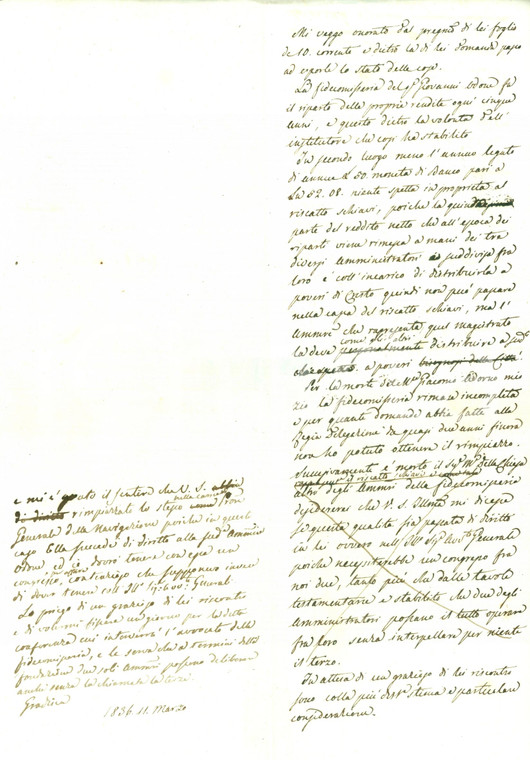 Mi veggo onorato dal pregmo di lei foglio
de 10. corrente e dietro la di lei domanda passo
ad esporle lo stato delle cose.
La fidecomisseria del q. Giovanni Odone fa
il riparto delle proprie rendite ogni cinque
anni, e questo dietro la volontà dell'
institutore che così ha stabilito
In secondo luogo meno l'annuo legato
di annue £ 50. moneta di Banco pari a
Ln 52. 08. niente spetta in proprietà al
riscatto schiavi, poiche la quinta
parte del reddito netto che all'epoca dei
riparti viene rimessa a mani dei tre
diversi Amministratori e suddivisa fra
loro è coll'incarico di distribuirla a
poveri di Cristo quindi non può passare
nella cassa del riscatto schiavi, ma l'
Ammre che rappresenta quel magistrato
la deve come gli altri personalmente distribuire a
a poveri bisognosi della Città.
Per la morte del Giacomo Adorno mio
zio la fidecomisseria rimase incompleta
e per quante domande abbia fatte alla
Regia Delegazione da quasi due anni finora
non ho potuto ottenere il rimpiazzo.
Successivamente è morto il Sigr Mse della Chiesa
altro degli Ammri della fidecomisseria
desidererei che V. S. Illma mi dicesse
se questa qualità sia passata di diritto
in lei ovvero nell' Avvto Generale
poiche necessiterebbe un congresso fra
noi due, tanto più che dalle tavole
testamentarie è stabilito che due degli
Amministratori possano il tutto operare
fra loro senza interpellare per niente
il terzo.
In attesa di un grazioso di lei riscontro
sono colla più distta stima e particolare
considerazione.
e mi è grato il sentire che V. S. abbia
di diritto rimpiazzato lo stesso nella carica
Generale della Navigazione poiche in quel
caso Ella succede di diritto alla fedea Ammne
Odone ed io dovrò tenere con esso un
congresso, contrario che supponevo invece
di dover tenere coll' Generali
La prego di un grazioso di lei riscontro
e di volermi fissare un giorno per la detta
conferenza cui interverrà l'avvocato della
fidecomisseria, e le servirà che a termini della
fondazione due soli Ammri possono deliberare
anche senza la chiamata la terza.
Gradisca
1836. 11. Marzo